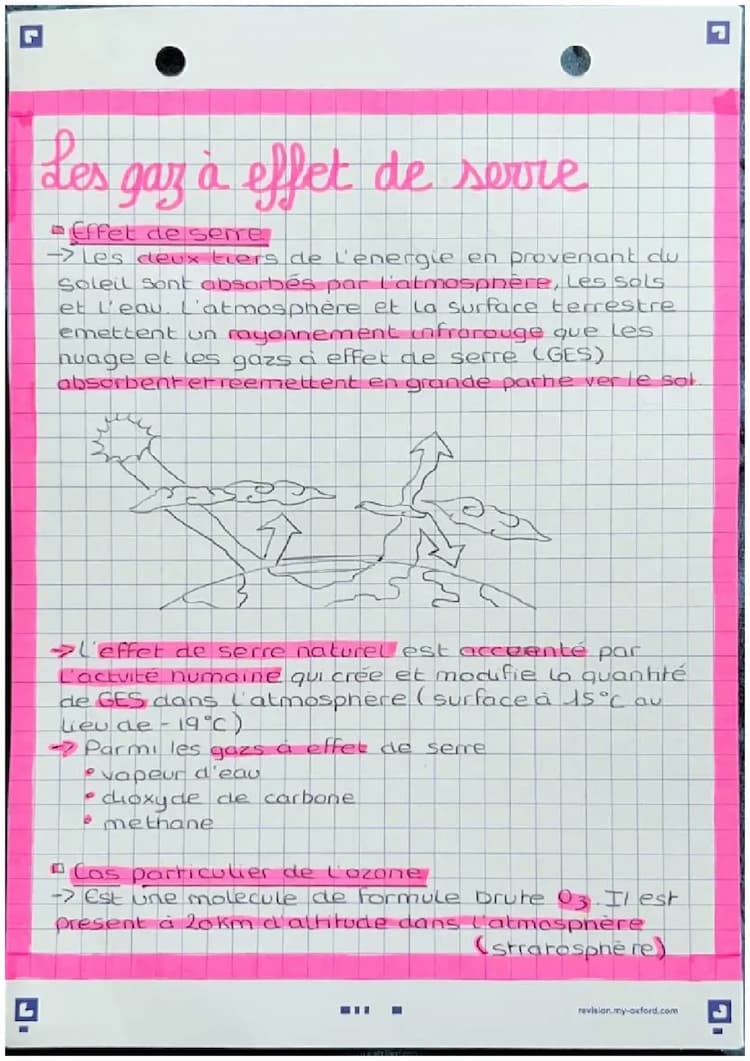 Les gaz à effet de serre
Effet de serre
→ Les deux tiers de l'energie en provenant du
soleil sont absorbés par l'atmosphère, les sols
et l'eau. L'atmosphère et la surface terrestre
emettent un rayonnement infrarouge que les
nuage et les gazs à effet de serre (GES)
absorbent et reemettent en grande partie ver le sol.
→ L'effet de serre naturel est acceenté par
L'activité humaine qui crée et modifie la quantité
de GES dans l'atmosphère (surface à 15°C au
lieu de -19°C)
→ Parmi les gazs à effet de serre
• vapeur d'eau
• dioxyde de carbone
• methane
Cas particulier de l'ozone
→ Est une molecule de formule brute O3. Il est
present à 20km d'altitude dans l'atmosphère
(stratosphère)
revision.my-oxford.com